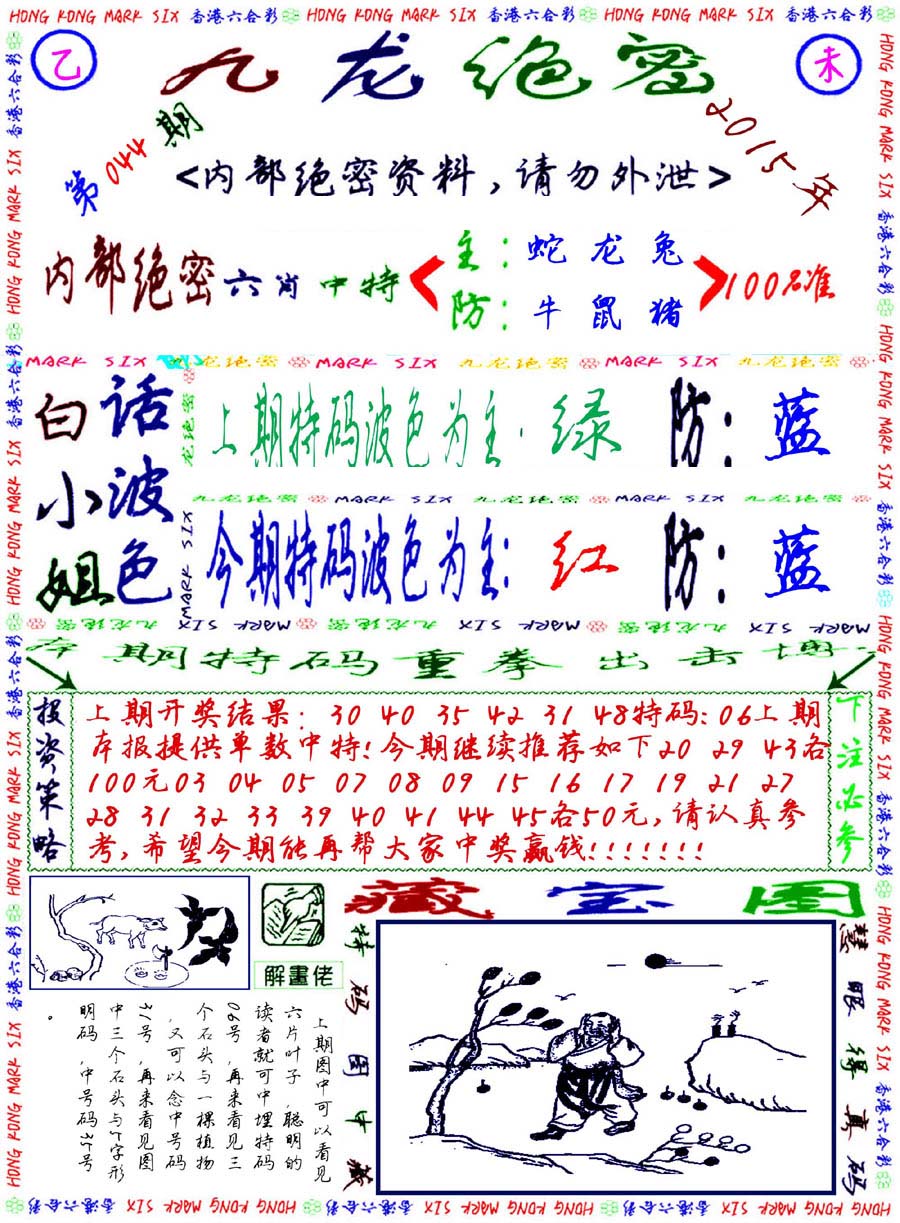 HONG KONG MARK SIX 香港六合彩 HONG KONG MARK SIX 香港六合彩 HONG KONG MARK SIX 香港六合彩
乙
九龙绝密
未
第044期
2015年
<内部绝密资料,请勿外泄>
内部绝密六肖中特
主:蛇龙兔
防:牛鼠猪
100%准
MARK SIX 九龙绝密 MARK SIX 九龙绝密 MARK SIX 九龙绝密
白话
小波
姐色
上期特码波色为主:绿 防:蓝
九龙绝密 MARK SIX 九龙绝密 MARK SIX 九龙绝密
今期特码波色为主:红 防:蓝
九龙绝密 MARK SIX 九龙绝密 MARK SIX 九龙绝密 MARK SIX
本期特码重拳出击博
投资策略
上期开奖结果: 30 40 35 42 31 48特码:06上期
本报提供单数中特!今期继续推荐如下20 29 43各
100元03 04 05 07 08 09 15 16 17 19 21 27
28 31 32 33 39 40 41 44 45各50元,请认真参
考,希望今期能再帮大家中奖赢钱!!!!!!!
下注必参
解畫佬
藏宝图
特码图中藏
慧眼得真码
上期图中可以看见
六片叶子,聪明的
读者就可中埋特码
06号,再来看见三
个石头与一棵植物
,又可以念中号码
31号,再来看见图
中三个石头与5字形
明码,中号码35号
。
HONG KONG MARK SIX 香港六合彩 HONG KONG MARK SIX 香港六合彩 HONG KONG MARK SIX 香港六合彩